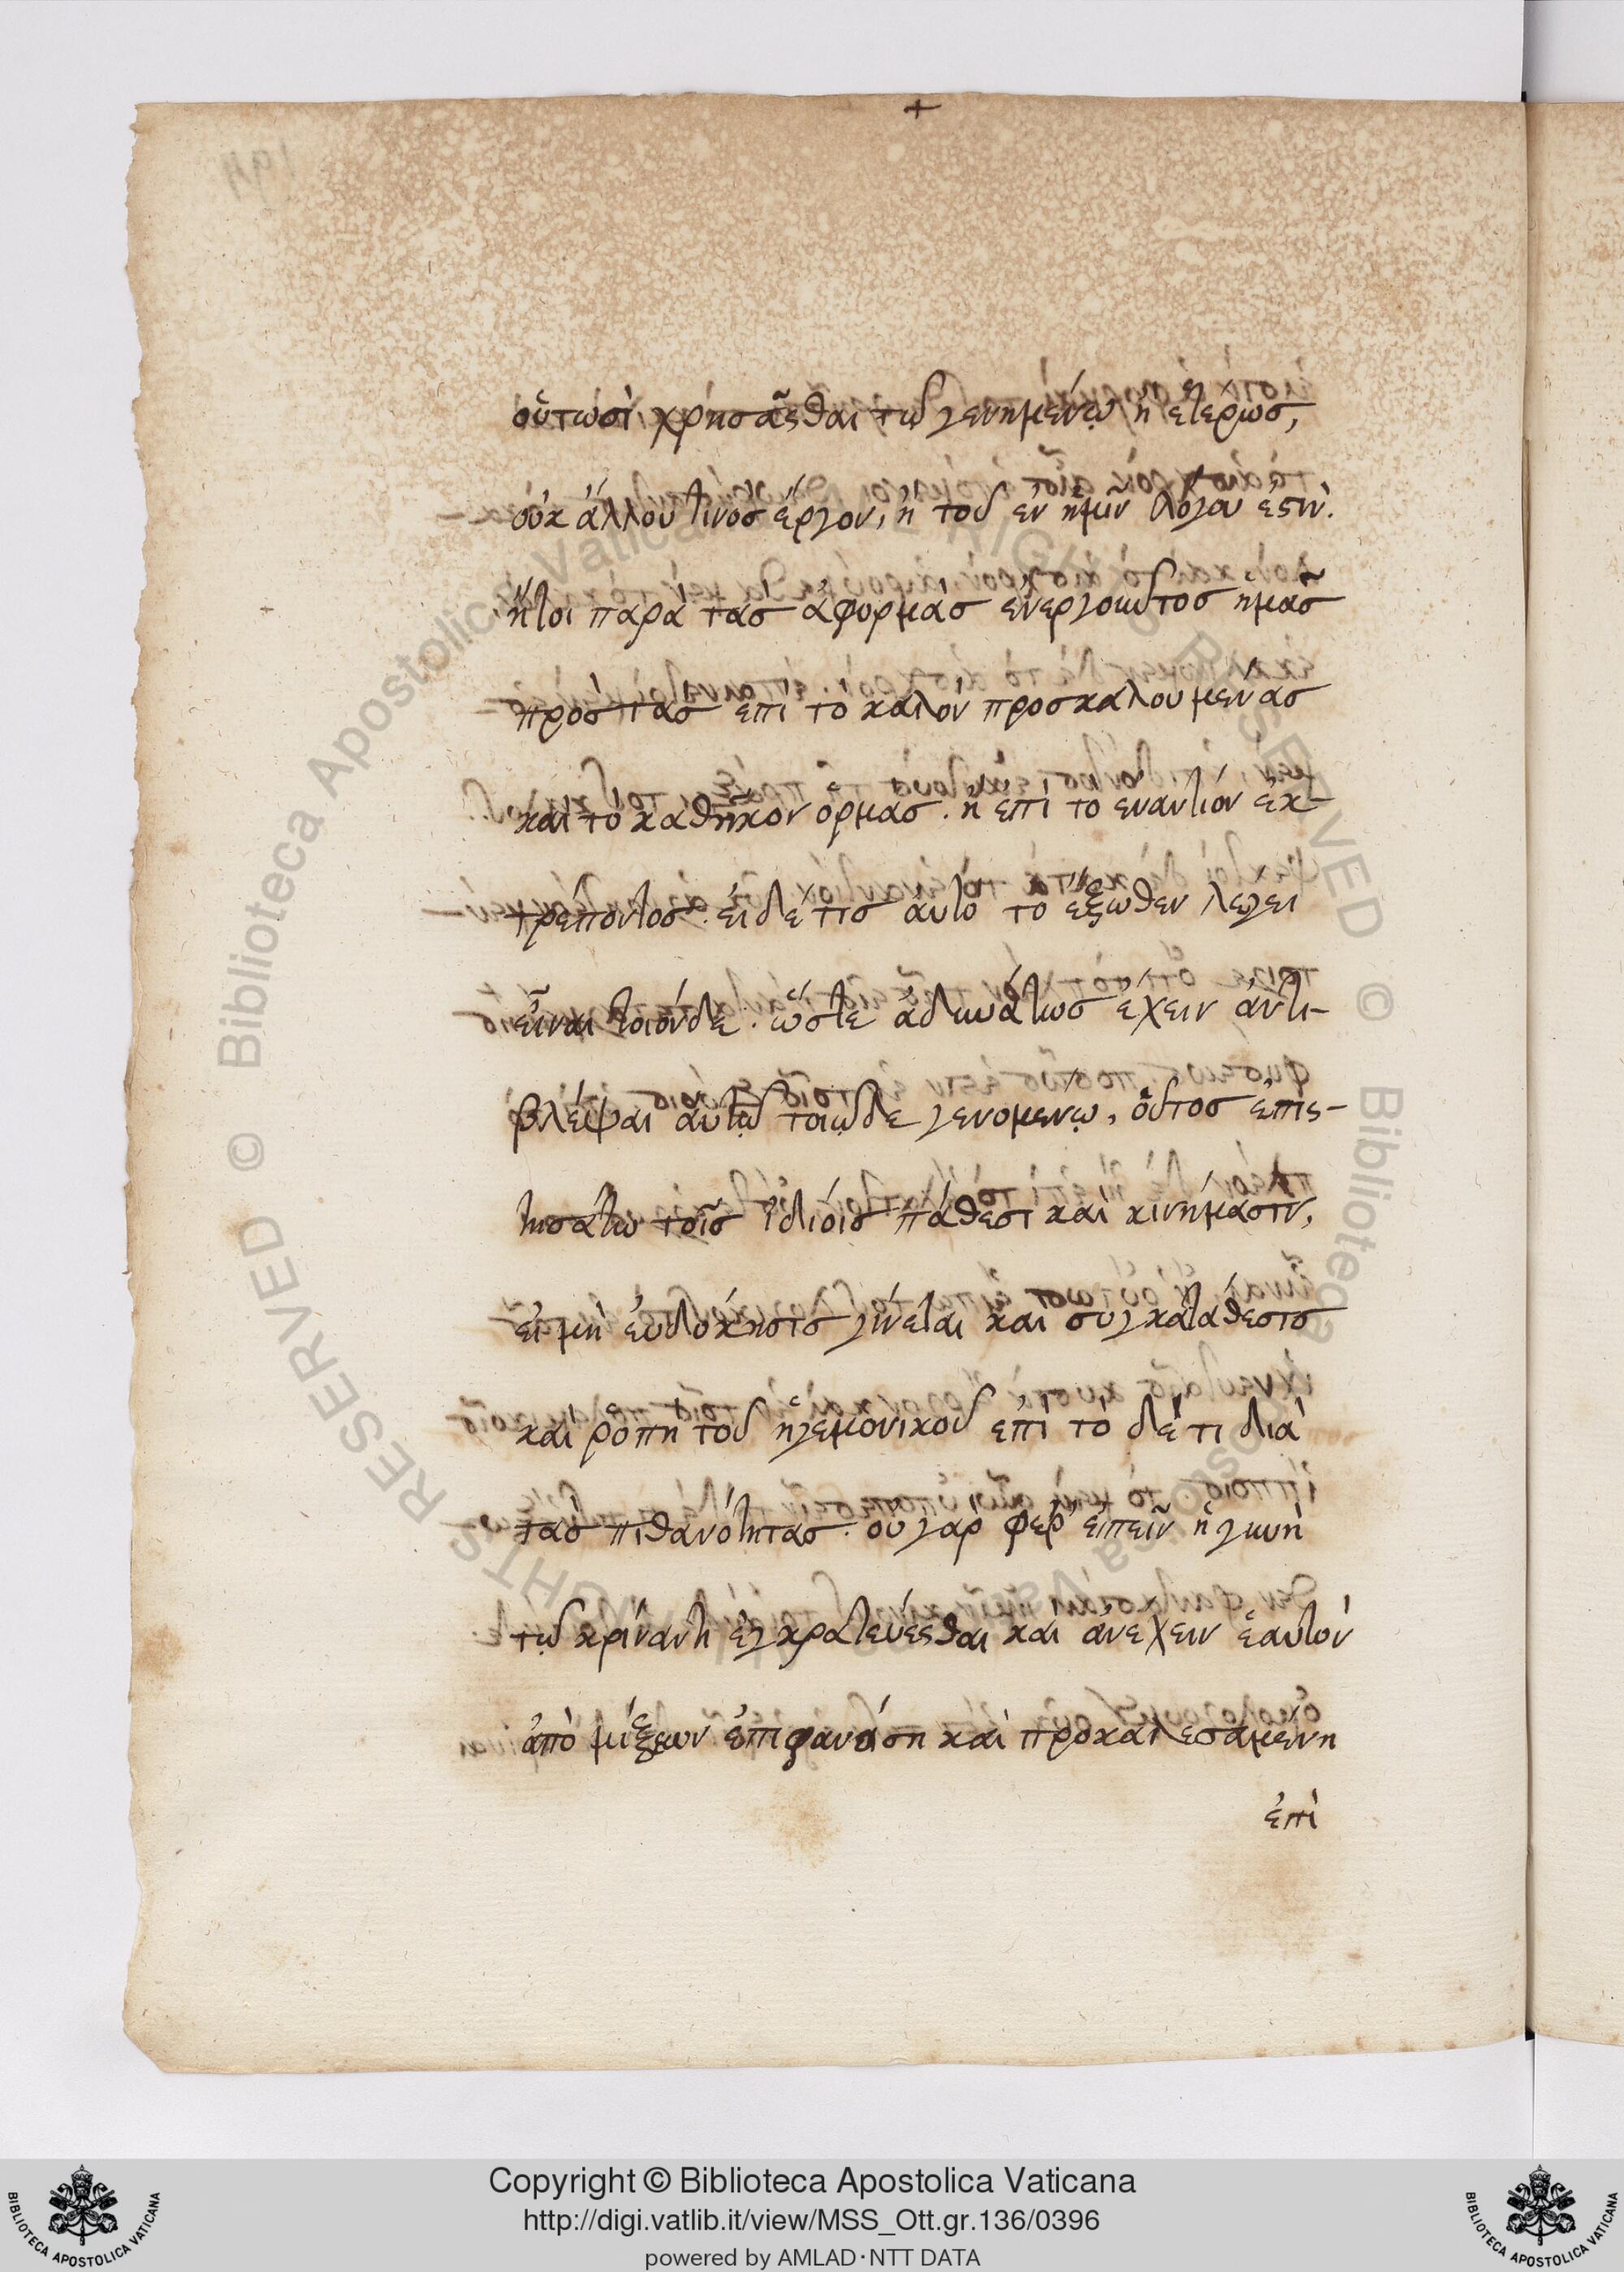 +
οὕτωσὶ χρήσασθαι τῷ γενημένῳ ἢ ἑτέρως,
οὐκ ἄλλου τινὸς ἔργον, ἢ τοῦ ἐν ἡμῖν λόγου ἐστὶν.
ἤτοι παρὰ τὰς ἀφορμὰς ἐνεργοῦντος ἡμᾶς
πρὸς τὰς ἐπὶ τὸ καλὸν προσκαλουμένας
καὶ τὸ καθῆκον ὁρμὰς. ἢ ἐπὶ τὸ ἐναντίον ἐκ-
τρέποντος. εἰ δέ τις αὐτὸ τὸ ἔξωθεν λέγει
εἶναι τοιόνδε. ὥστε ἀδυνάτως ἔχειν ἀντι-
βλέψαι αὐτῷ τοιῷδε γενομένῳ, οὗτος ἐπισ-
τησάτω τοῖς ἰδίοις πάθεσι καὶ κινήμασιν,
εἰ μὴ εὐδόκησις γίνεται καὶ συγκατάθεσις
καὶ ῥοπὴ τοῦ ἡγεμονικοῦ ἐπὶ τὸ δέ τι διὰ
τὰς πιθανότητας. οὐ γὰρ φέρ' εἰπεῖν ἡ γυνὴ
τῷ κρίναντι ἐγκρατεύεσθαι καὶ ἀνέχειν ἑαυτὸν
ἀπὸ μίξεων ἐπιφανείση καὶ προκαλεσαμένη
ἐπὶ
Copyright © Biblioteca Apostolica Vaticana
http://digi.vatlib.it/view/MSS_Ott.gr.136/0396
powered by AMLAD·NTT DATA
BIBLIOTECA APOSTOLICA VATICANA
BIBLIOTECA APOSTOLICA VATICANA